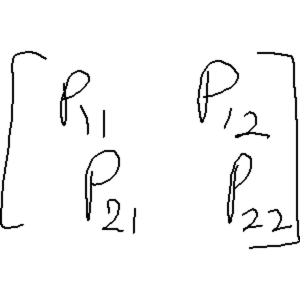 [P₁₁ P₁₂
P₂₁ P₂₂]